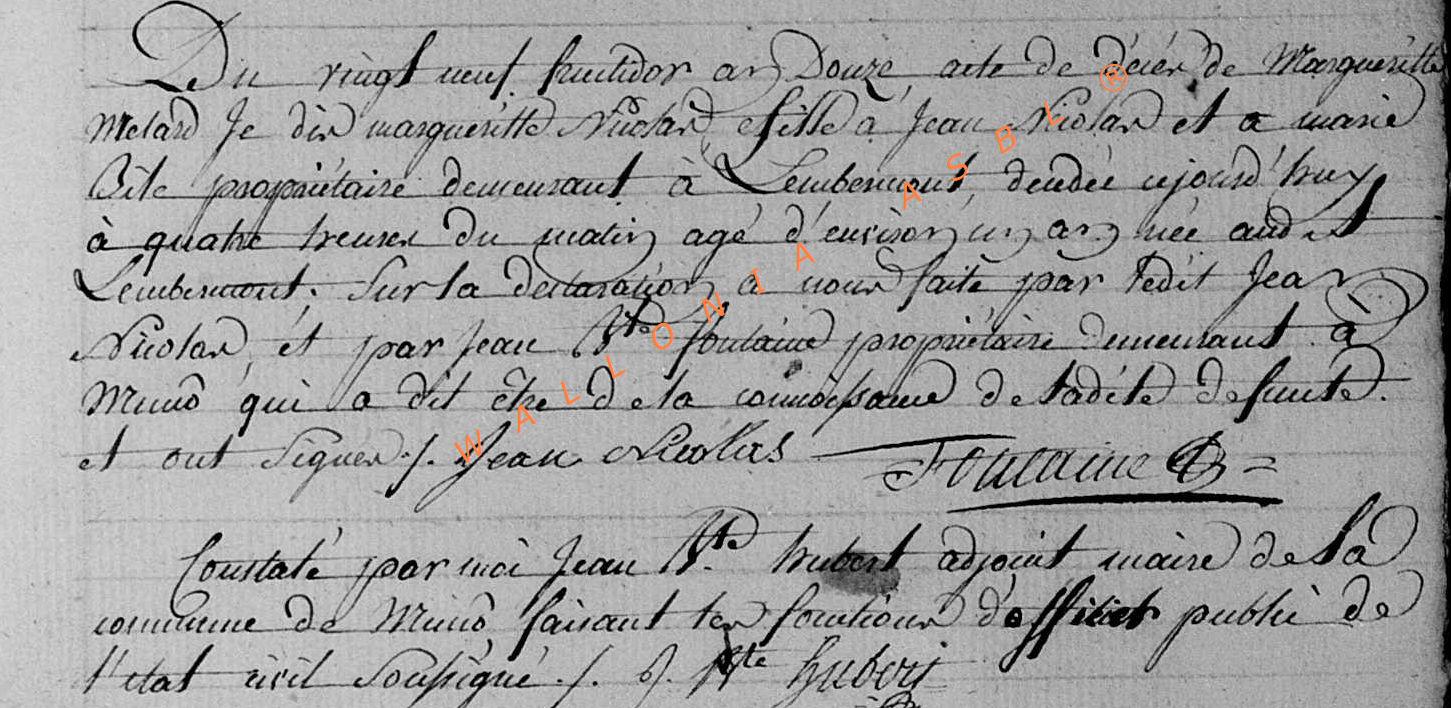 Du vingt neuf fructidor an Douze acte de décés de Margueritte
Melard Je dis margueritte Nicolas, fille a Jean Nicolas et a marie
propriétaire demeurant à Lembermont, décédée cejourd'huy
à quatre heures du matin agé d'environ un an née audit
Lembermont. Sur la declaration a nous faite par ledit Jean
Nicolas et par Jean Bte fontaine propriétaire demeurant à
Muno qui a dit être de la connoissance de ladite defunte.
et ont signés ./. Jean Nicolas Fontaine
Constaté par moi Jean Bte hubert adjoint maire de la
commune de Muno faisant les fonctions d'officier public de
l'etat civil soussigné ./. J. Bte hubert
WALLONIA ASBL ®